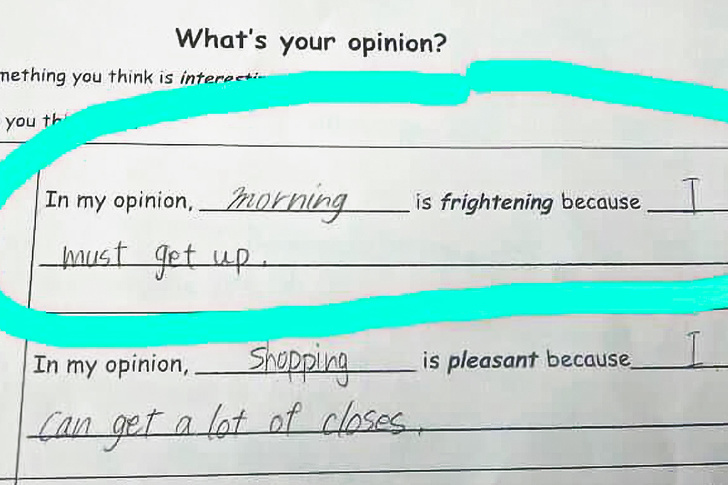 What's your opinion?
mething you think is interesti
you th
In my opinion, morning is frightening because I
must get up.
In my opinion, shopping is pleasant because I
can get a lot of closes.